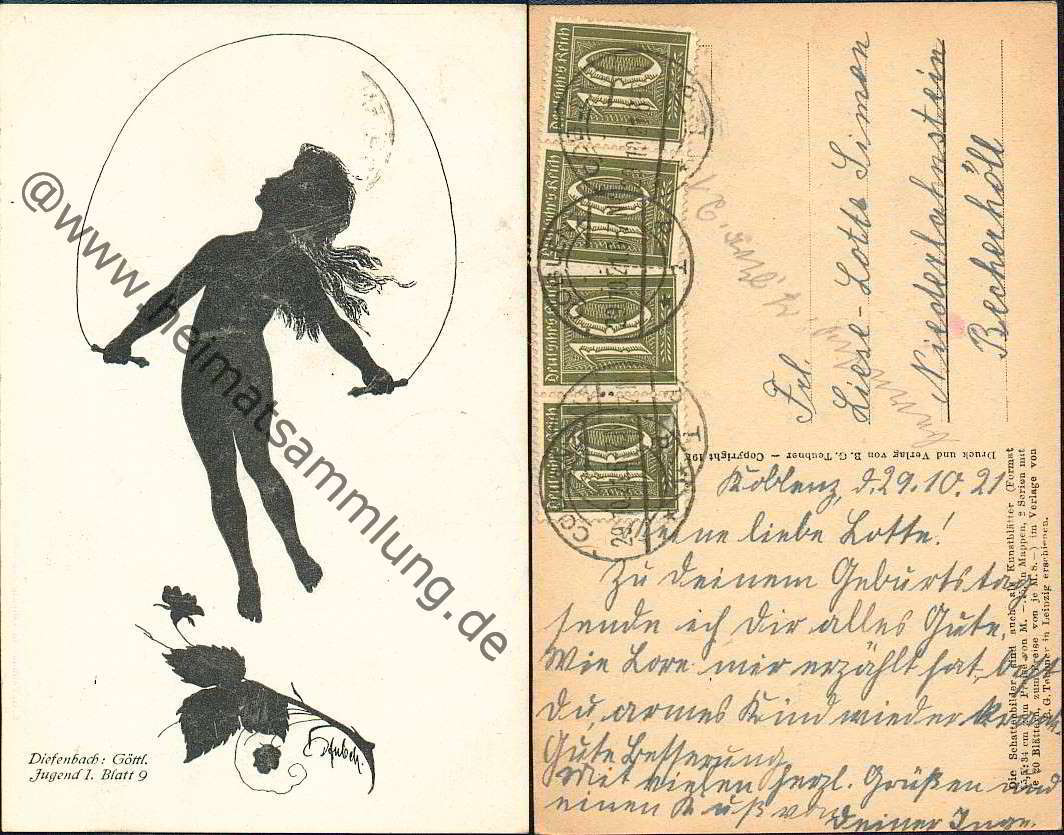 @www.heimatsammlung.de
Diefenbach: Göttl.
Jugend I. Blatt 9
Deutsches Reich
10
Deutsches Reich
10
Deutsches Reich
10
Deutsches Reich
10
Frl.
Liese-Lotte Simon
Niederlahnstein
Becherhöll
Druck und Verlag von B. G. Teubner — Copyright
Die Schattenbilder sind auch als Kunstblätter (Format
34 cm zum Preise von M. in Mappen, 2 Serien mit
je 20 Blättern, zum Preise von je M. 8.—) im Verlage von
B. G. Teubner in Leipzig erschienen.
Koblenz, d. 29.10.21
Meine liebe Lotte!
Zu Deinem Geburtstag
sende ich Dir alles Gute.
Wie Lore mir erzählt hat, bist
Du armes Kind wieder krank.
Gute Besserung
Mit vielen herzl. Grüßen und
einen Kuß von Deiner Inge.